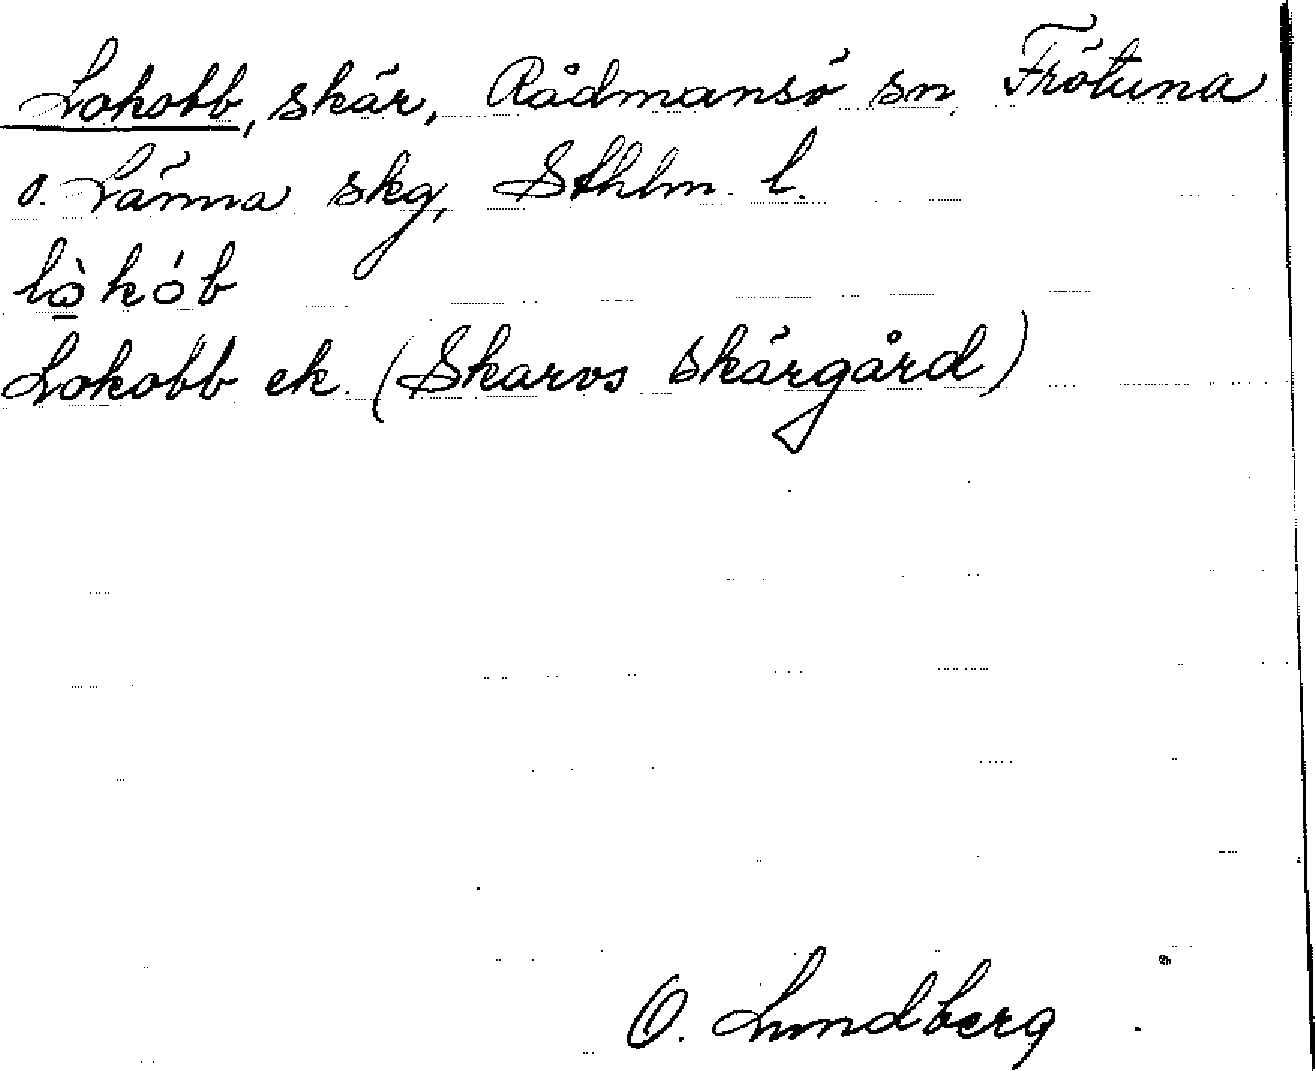 Lokobb, skär, Rådmansö sn, Frötuna
o. Länna skg, Sthlm. l.
lò̱kób
Lokobb ek. (Skarvs skärgård)
O. Lundberg